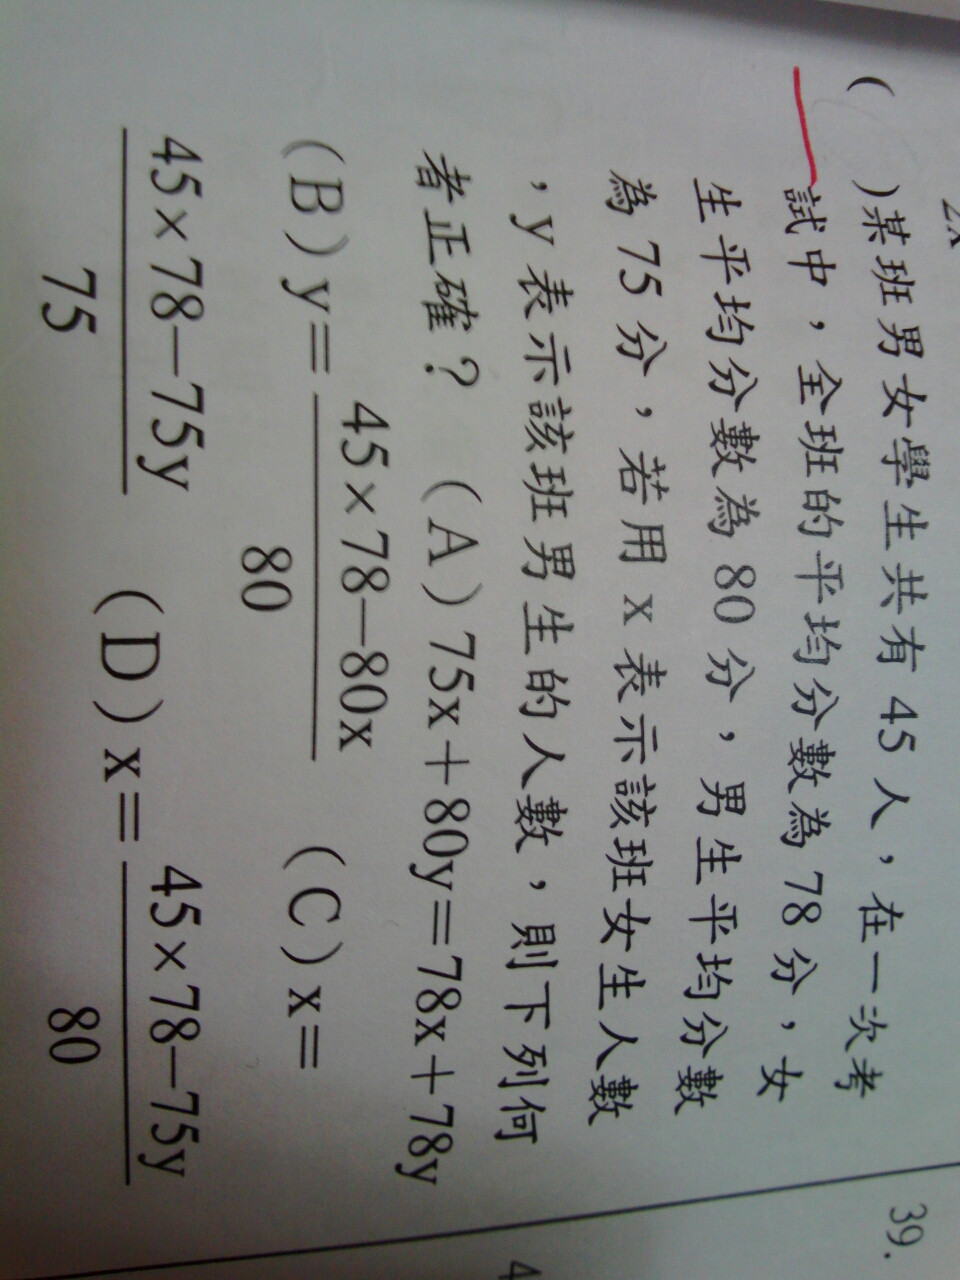 2x
( )某班男女學生共有 45 人，在一次考
試中，全班的平均分數為 78 分，女
生平均分數為 80 分，男生平均分數
為 75 分，若用 x 表示該班女生人數
，y 表示該班男生的人數，則下列何
者正確？ (A) 75x＋80y＝78x＋78y
(B) y＝ 45×78−80x / 80 (C) x＝
45×78−75y / 75 (D) x＝ 45×78−75y / 80
39.
4